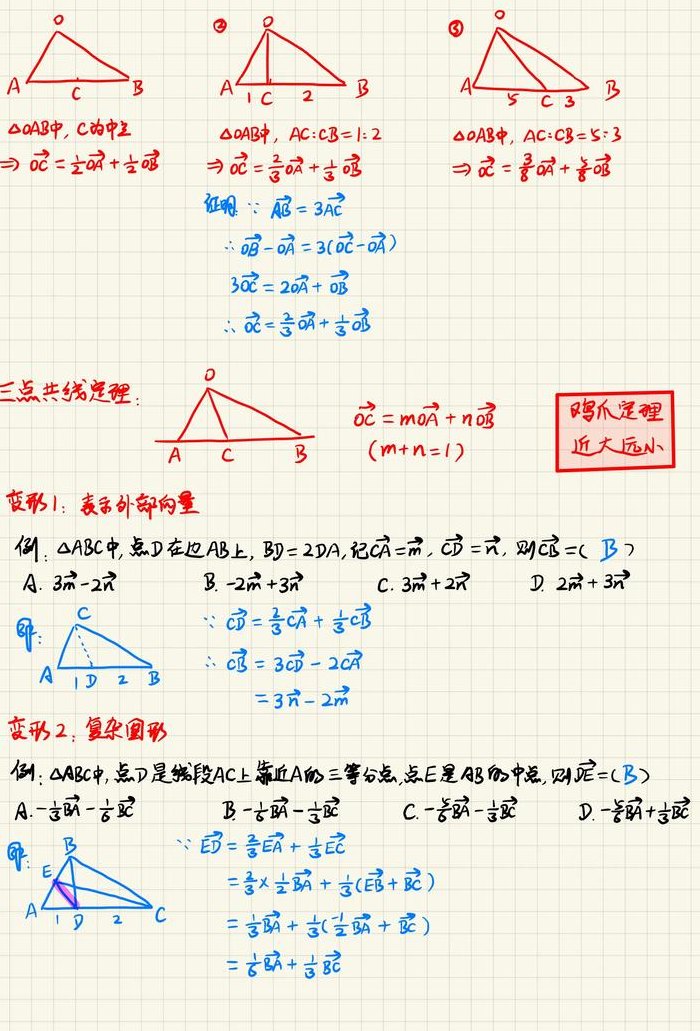 O ② O ③ O
A C B A 1 C 2 B A 5 C 3 B
△OAB中, C为中点 △OAB中, AC:CB=1:2 △OAB中, AC:CB=5:3
⇒ \vec{OC} = \frac{1}{2}\vec{OA} + \frac{1}{2}\vec{OB} ⇒ \vec{OC} = \frac{2}{3}\vec{OA} + \frac{1}{3}\vec{OB} ⇒ \vec{OC} = \frac{3}{8}\vec{OA} + \frac{5}{8}\vec{OB}
证明: ∵ \vec{AB} = 3\vec{AC}
∴ \vec{OB} - \vec{OA} = 3(\vec{OC} - \vec{OA})
3\vec{OC} = 2\vec{OA} + \vec{OB}
∴ \vec{OC} = \frac{2}{3}\vec{OA} + \frac{1}{3}\vec{OB}
三点共线定理:
O
A C B
\vec{OC} = m\vec{OA} + n\vec{OB}
(m+n=1)
鸡爪定理
近大远小
变形1: 表示外部向量
例: △ABC中, 点D在边AB上, BD=2DA, 记\vec{CA}=\vec{m}, \vec{CD}=\vec{n}, 则\vec{CB}=( B )
A. 3\vec{m}-2\vec{n} B. -2\vec{m}+3\vec{n} C. 3\vec{m}+2\vec{n} D. 2\vec{m}+3\vec{n}
即:
C
A 1 D 2 B
∵ \vec{CD} = \frac{2}{3}\vec{CA} + \frac{1}{3}\vec{CB}
∴ \vec{CB} = 3\vec{CD} - 2\vec{CA}
= 3\vec{n} - 2\vec{m}
变形2: 复杂图形
例: △ABC中, 点D是线段AC上靠近A的三等分点, 点E是AB的中点, 则\vec{DE}=( B )
A. -\frac{1}{3}\vec{BA} - \frac{1}{6}\vec{BC} B. -\frac{1}{6}\vec{BA} - \frac{1}{3}\vec{BC} C. -\frac{5}{6}\vec{BA} - \frac{1}{3}\vec{BC} D. -\frac{5}{6}\vec{BA} + \frac{1}{3}\vec{BC}
即:
B
E
A 1 D 2 C
∵ \vec{ED} = \frac{2}{3}\vec{EA} + \frac{1}{3}\vec{EC}
= \frac{2}{3} × \frac{1}{2}\vec{BA} + \frac{1}{3}(\vec{EB} + \vec{BC})
= \frac{1}{3}\vec{BA} + \frac{1}{3}(\frac{-1}{2}\vec{BA} + \vec{BC})
= \frac{1}{6}\vec{BA} + \frac{1}{3}\vec{BC}